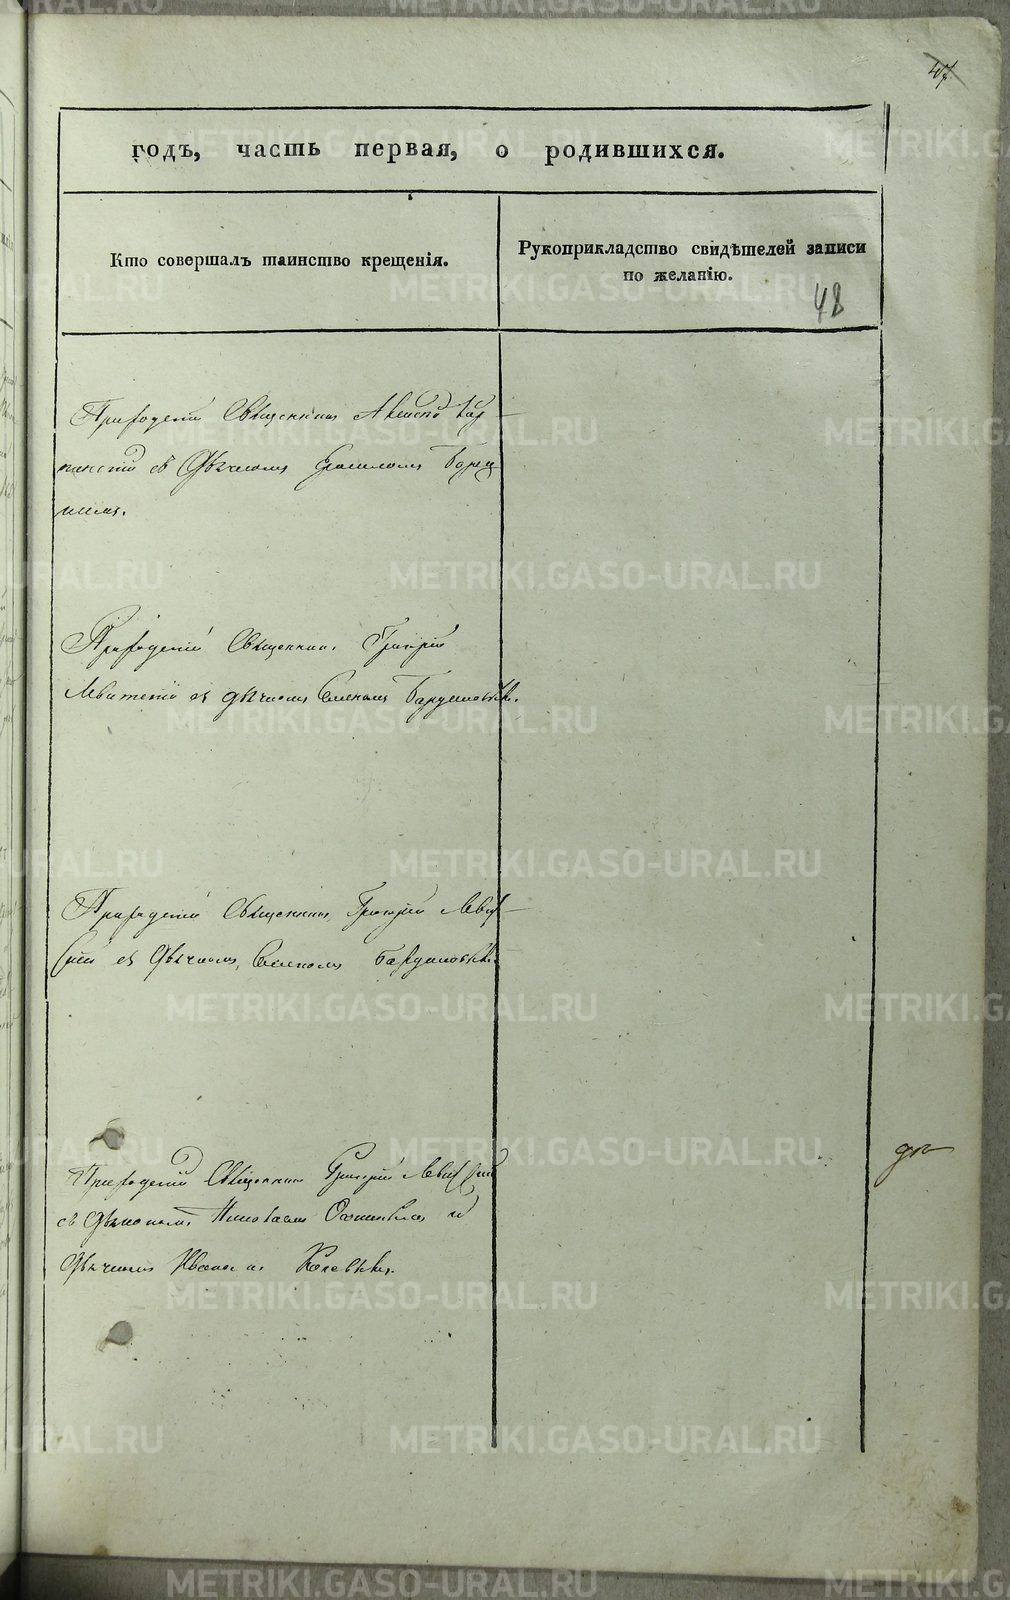 47
годъ, часть первая, о родившихся.
Кто совершалъ таинство крещенія.
Рукоприкладство свидѣтелей записи
по желанію.
48
Приходскій Священникъ Алексій
съ Дьячкомъ
Приходскій Священникъ Григорій
Левитскій съ дьячкомъ Семеномъ
Приходскій Священникъ Григорій Левит
скій съ Дьячкомъ Семеномъ
Приходскій Священникъ Григорій Левитскій
съ Дьякономъ Николаемъ и
Дьячкомъ Иваномъ
METRIKI.GASO-URAL.RU